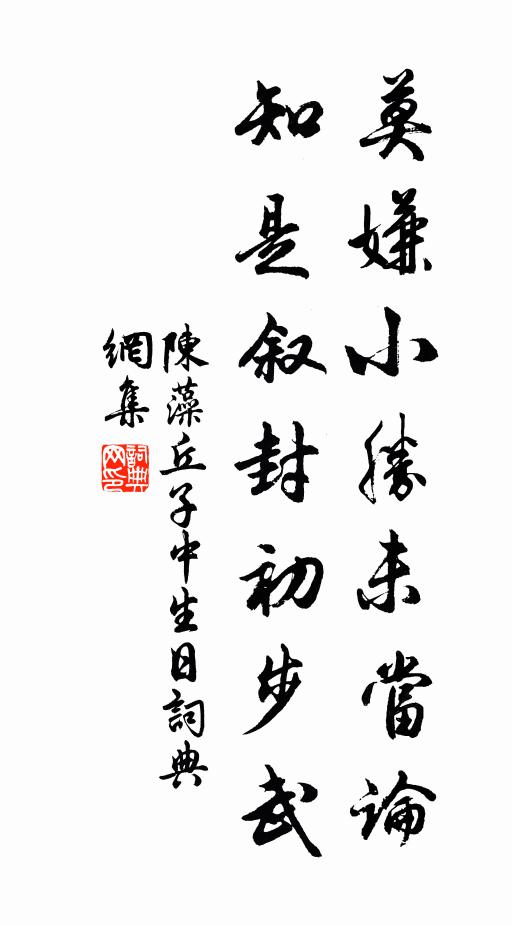 莫嫌小勝未當論
知是叙封初步武
陳藻丘子中生日詞典
網集
詞典網印